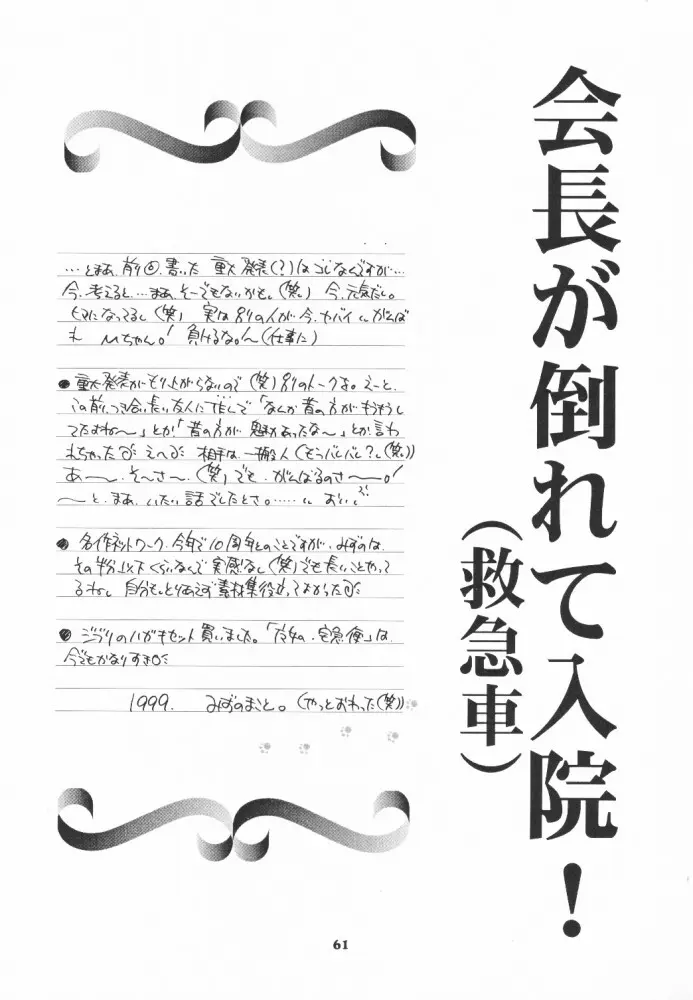 会長が倒れて入院!
(救急車)
…とまあ、前回書いた重大発表(?)はコレなんですが…
今、考えると…まあ、そーでもないかも。(笑)今、元気だし。
ヒマになってるし(笑) 実は別の人が今、ヤバイ がんば
れ Mちゃん! 負けるな!〜(仕事に)
●重大発表がもり上がらないので(笑)別のトークを。えーと、
この前、つき合い長い友人に 「なんか昔の方がもうもうし
てたよね〜」とか「昔の方が魅力あったな〜」とか言わ
れちゃった えへ 相手は、一般人(もうバレバレ?(笑))
あ〜、そ〜さ〜、(笑)でも、がんばるのさ〜!
〜と、まあ、いたい話でしたとさ。…… おい
●名作ネットワーク、今年で10周年とのことですが、みずのは、
その半分以下くらいなんで実感なし(笑)でも長いことやって
るわねー 自分も、とりあえず素材集役立ってよかった
●ジブリのハガキセット買いました。「魔女の宅急便」は、
今でもかなりすき
1999. みずのまこと。(やっとおわった(笑))
61